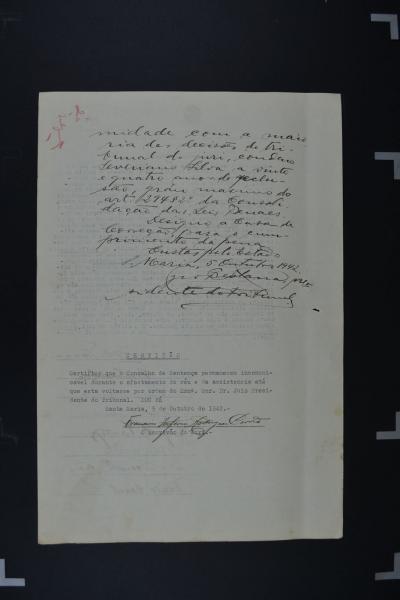 midade com a maio
ria das decisões do tri
bunal do juri, condeno
Severiano Silva a vinte
e quatro anos de reclu
são, gráu maximo do
art. 294 § 2º da Consoli
dação das Leis Penaes.
Designo a Casa de
Correção para o cum
primento da pena.
Custas pelo Estado
S. Maria, 5 Outubro 1942.
CERTIDÃO
Certifico que o Conselho de Sentença permaneceu incomuni-
cavel durante o afastamento do réu e da assistencia até
que esta voltasse por ordem do Exmo. snr. Dr. Juiz Presi-
dente do Tribunal. DOU FÉ
Santa Maria, 5 de Outubro de 1942.-
O escrivão do Juri.-